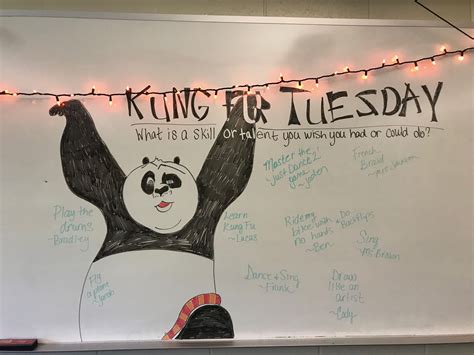 KUNG FU TUESDAY
What is a skill or talent you wish you had or could do?
Master the
Just Dance 2
game
French
Braid
Play the
drums
~Bradley
Learn
Kung Fu
~Lucas
Ride my
bike with
no hands
~Ben
Do
Backflips
Sing
Fly
a plane
Dance + Sing
~Frank
Draw
like an
artist
~Cody